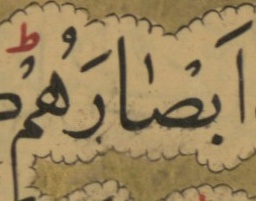 اَبْصَارَهُمْ ط